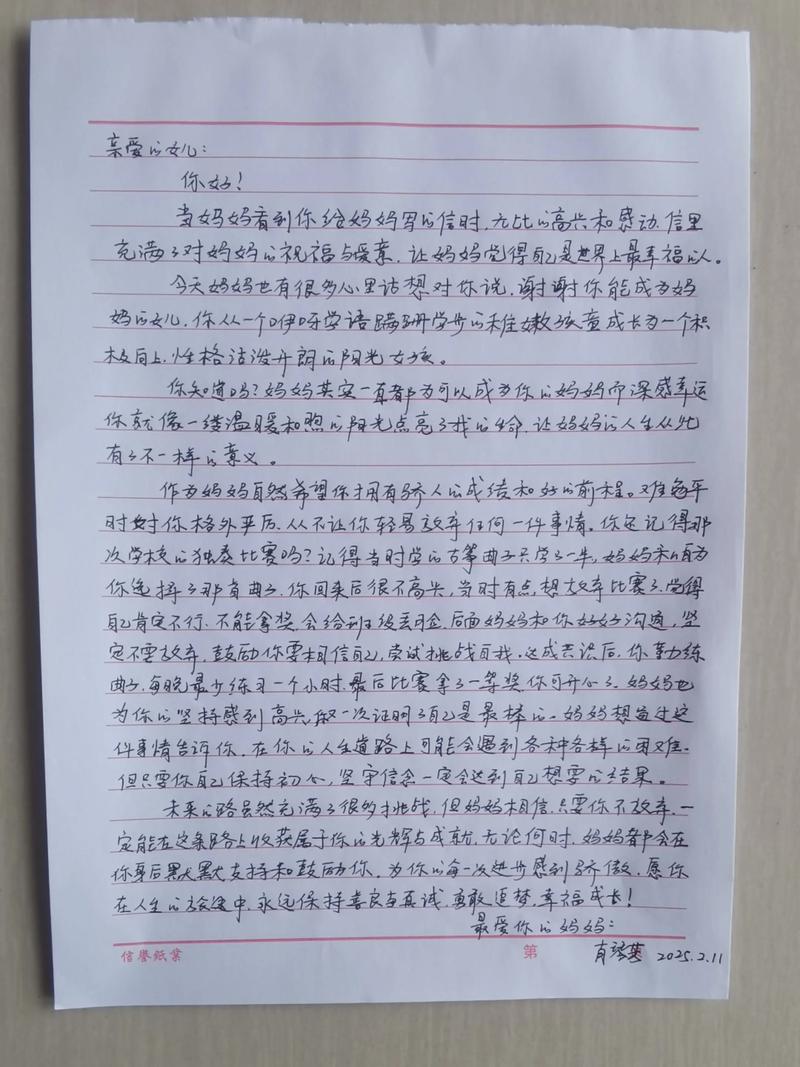 亲爱的女儿：
你好！
当妈妈看到你给妈妈写的信时，无比的高兴和感动，信里
充满了对妈妈的祝福与爱意，让妈妈觉得自己是世界上最幸福的人。
今天妈妈也有很多心里话想对你说，谢谢你能成为妈
妈的女儿，你从一个咿呀学语蹒跚学步的稚嫩孩童成长为一个积
极向上，性格活泼开朗的阳光女孩。
你知道吗？妈妈其实一直都为可以成为你的妈妈而深感幸运
你就像一缕温暖和煦的阳光点亮了我的生命，让妈妈的人生从此
有了不一样的意义。
作为妈妈自然希望你拥有骄人的成绩和好的前程。难免平
时对你格外严厉，从不让你轻易放弃任何一件事情。你还记得那
次学校的独奏比赛吗？记得当时学的古筝曲子只学了一半，妈妈和
你选择了那首曲子，你回来后很不高兴，当时有点想放弃比赛了，觉得
自己肯定不行，不能拿奖，会给班级丢脸，后面妈妈和你好好沟通，坚
定不要放弃，鼓励你要相信自己，尝试挑战自我。达成共识后，你努力练
曲子，每晚最少练习一个小时，最后比赛拿了一等奖，你可开心了。妈妈也
为你的坚持感到高兴，一次证明了自己是最棒的。妈妈想通过这
件事情告诉你，在你的人生道路上可能会遇到各种各样的困难，
但只要你自己保持初心，坚守信念一定会达到自己想要的结果。
未来的路虽然充满了很多挑战，但妈妈相信，只要你不放弃，一
定能在这条路上收获属于你的光辉与成就，无论何时，妈妈都会在
你身后默默支持和鼓励你，为你的每一次进步感到骄傲，愿你
在人生的旅途中，永远保持善良与真诚，勇敢追梦，幸福成长！
最爱你的妈妈：
信誉纸业 第 2025.2.11